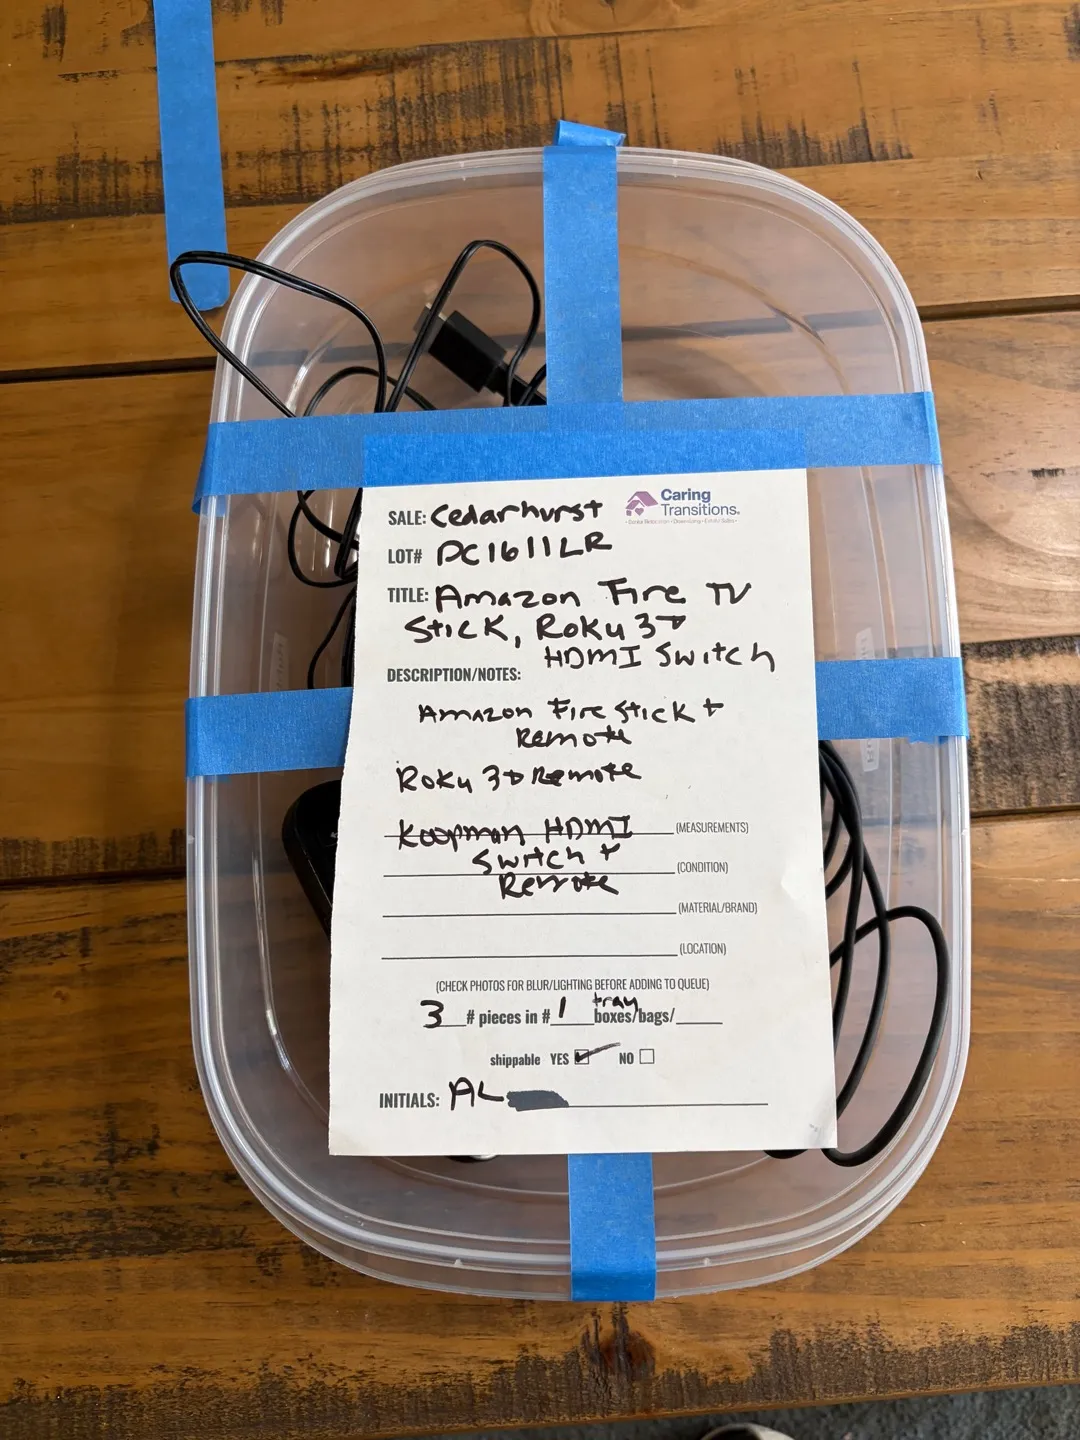 Caring
Transitions
SALE: Cedarhurst
LOT# DC1611LR
TITLE: Amazon Fire TV
Stick, Roku 3+
HDMI Switch
DESCRIPTION/NOTES:
Amazon Fire Stick +
Remote
Roku 3+ Remote
Koopman HDMI (MEASUREMENTS)
Switch +
(CONDITION)
Remote
(MATERIAL/BRAND)
(LOCATION)
(CHECK PHOTOS FOR BLUR/LIGHTING BEFORE ADDING TO QUEUE)
tray
3 # pieces in # 1 boxes/bags/
shippable YES ☑ NO ☐
INITIALS: AL